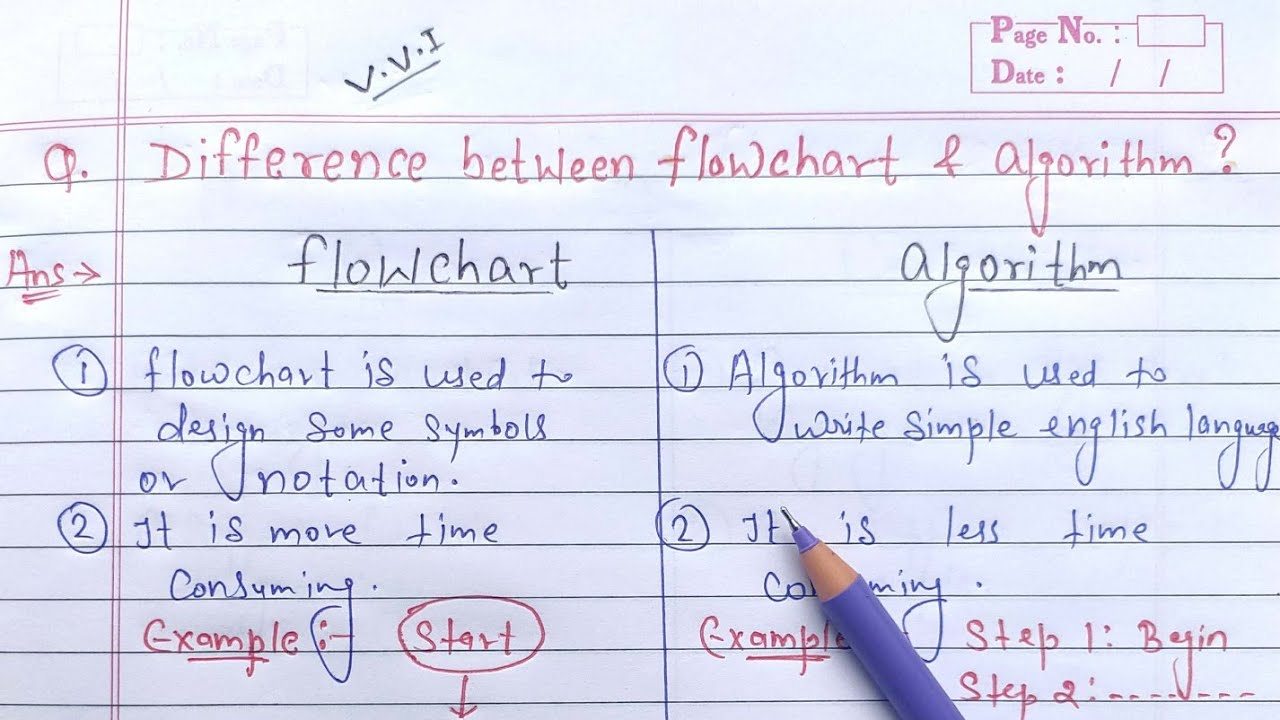 V.V.I
Page No. :
Date : / /
Q. Difference between flowchart & algorithm ?
Ans →
flowchart
① flowchart is used to
design some symbols
or notation.
② It is more time
Consuming.
Example :- Start
algorithm
① Algorithm is used to
write simple english language
② It is less time
Example
Step 1: Begin
Step 2: -------